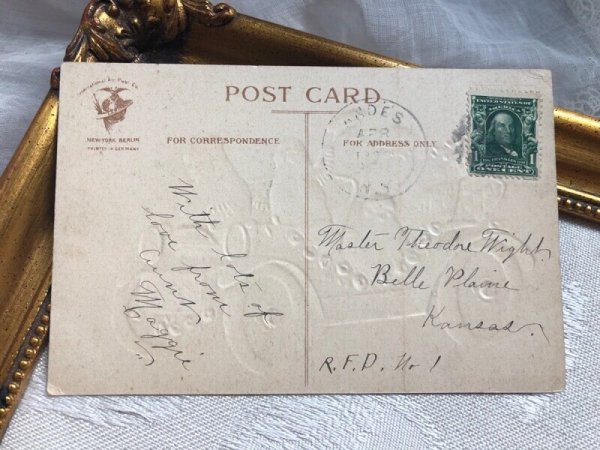 International Art Publ. Co.
NEW-YORK BERLIN
PRINTED IN GERMANY
POST CARD
FOR CORRESPONDENCE
FOR ADDRESS ONLY
APR
UNITED STATES OF
AMERICA
1 1
POSTAGE
ONE CENT
With lots of
love from
Aunt
Maggie
Master Theodore Wight
Belle Plaine
Kansas.
R.F.D. No 1